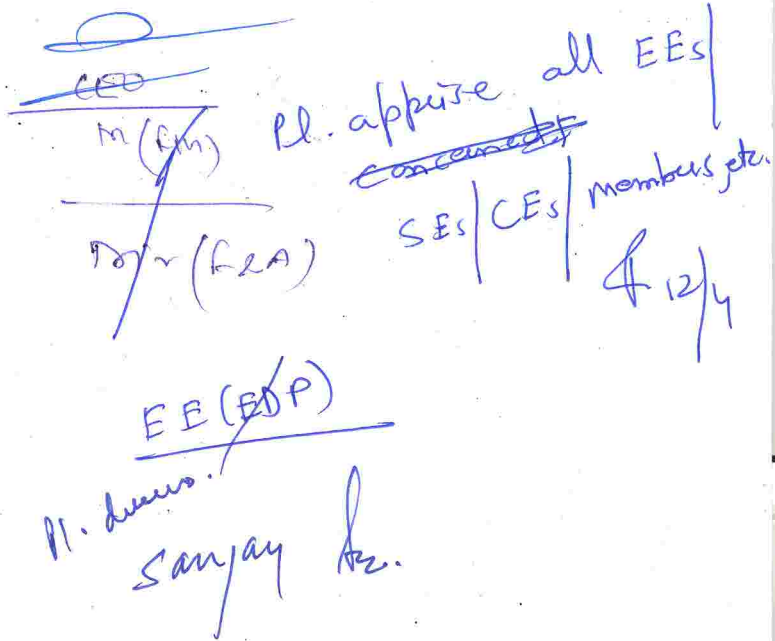 CEO
M (F/M) Pl. appraise all EEs|
concerned
SEs|CEs|members, etc.
(F&A)
12/4
EE (EDP)
Pl. discuss.
Sanjay